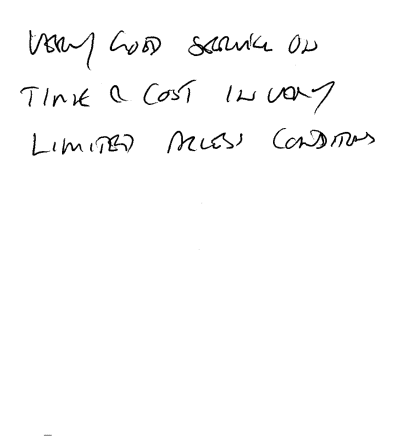 VERY GOOD SERVICE ON
TIME & COST IN VERY
LIMITED ACCESS CONDITIONS